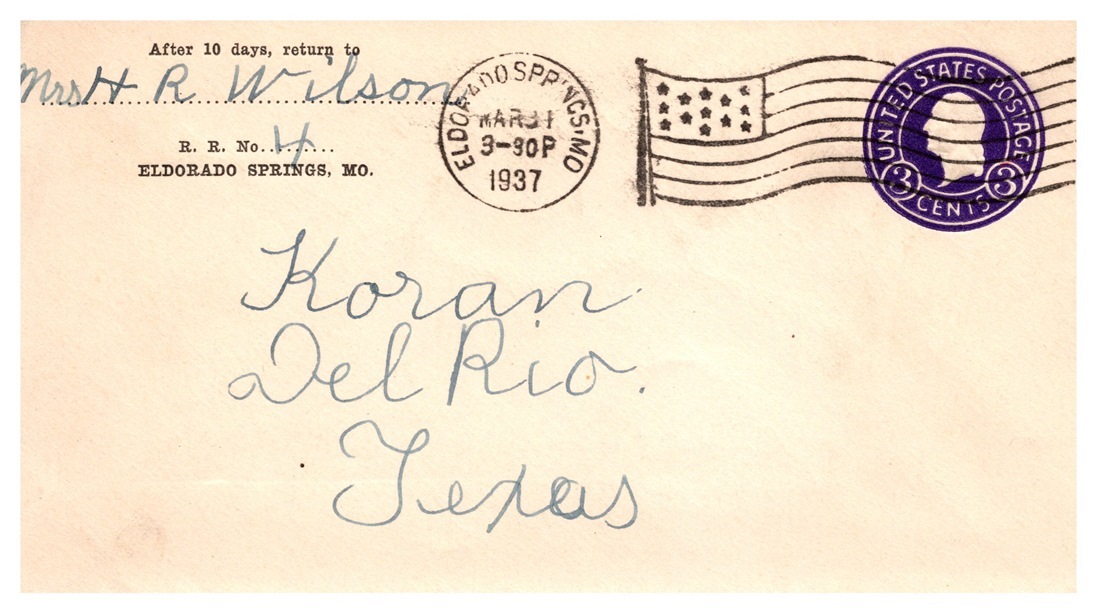 After 10 days, return to
Mrs H R Wilson
R. R. No. 4
ELDORADO SPRINGS, MO.
ELDORADO SPRINGS, MO
MAR 31
3-30P
1937
UNITED STATES POSTAGE
3 CENTS 3
Koran
Del Rio.
Texas